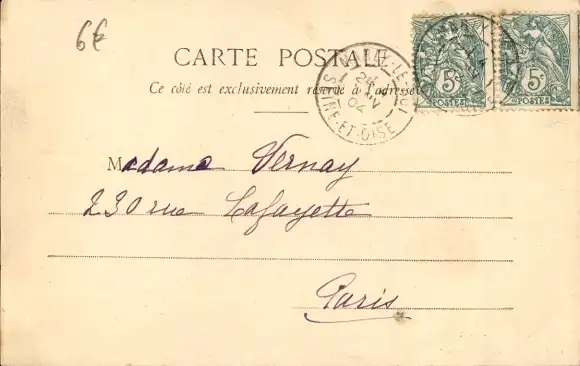 6€
CARTE POSTALE
Ce côté est exclusivement réservé à l'adresse
SEINE-ET-OISE
24
04
5c 5c
POSTES POSTES
Madame Vernay
230 rue Lafayette
Paris